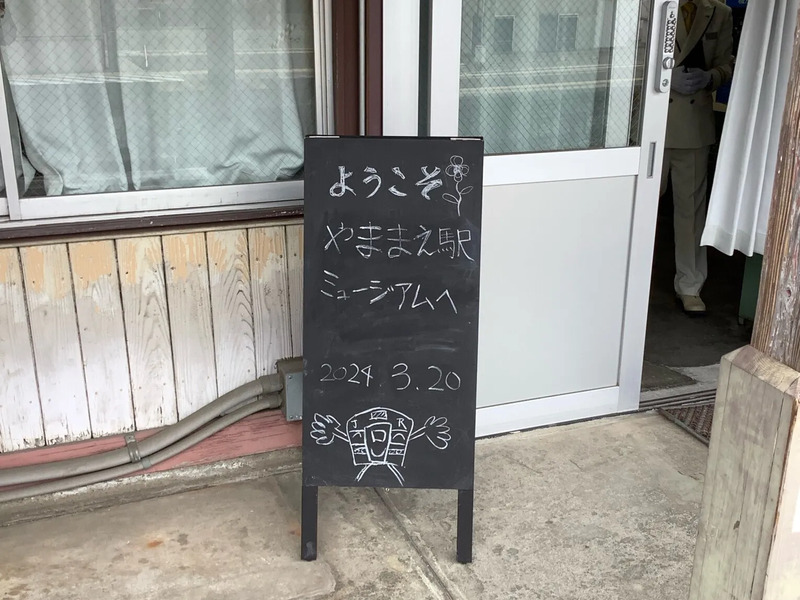 ようこそ
やままえ駅
ミュージアムへ
2024. 3.20
J R